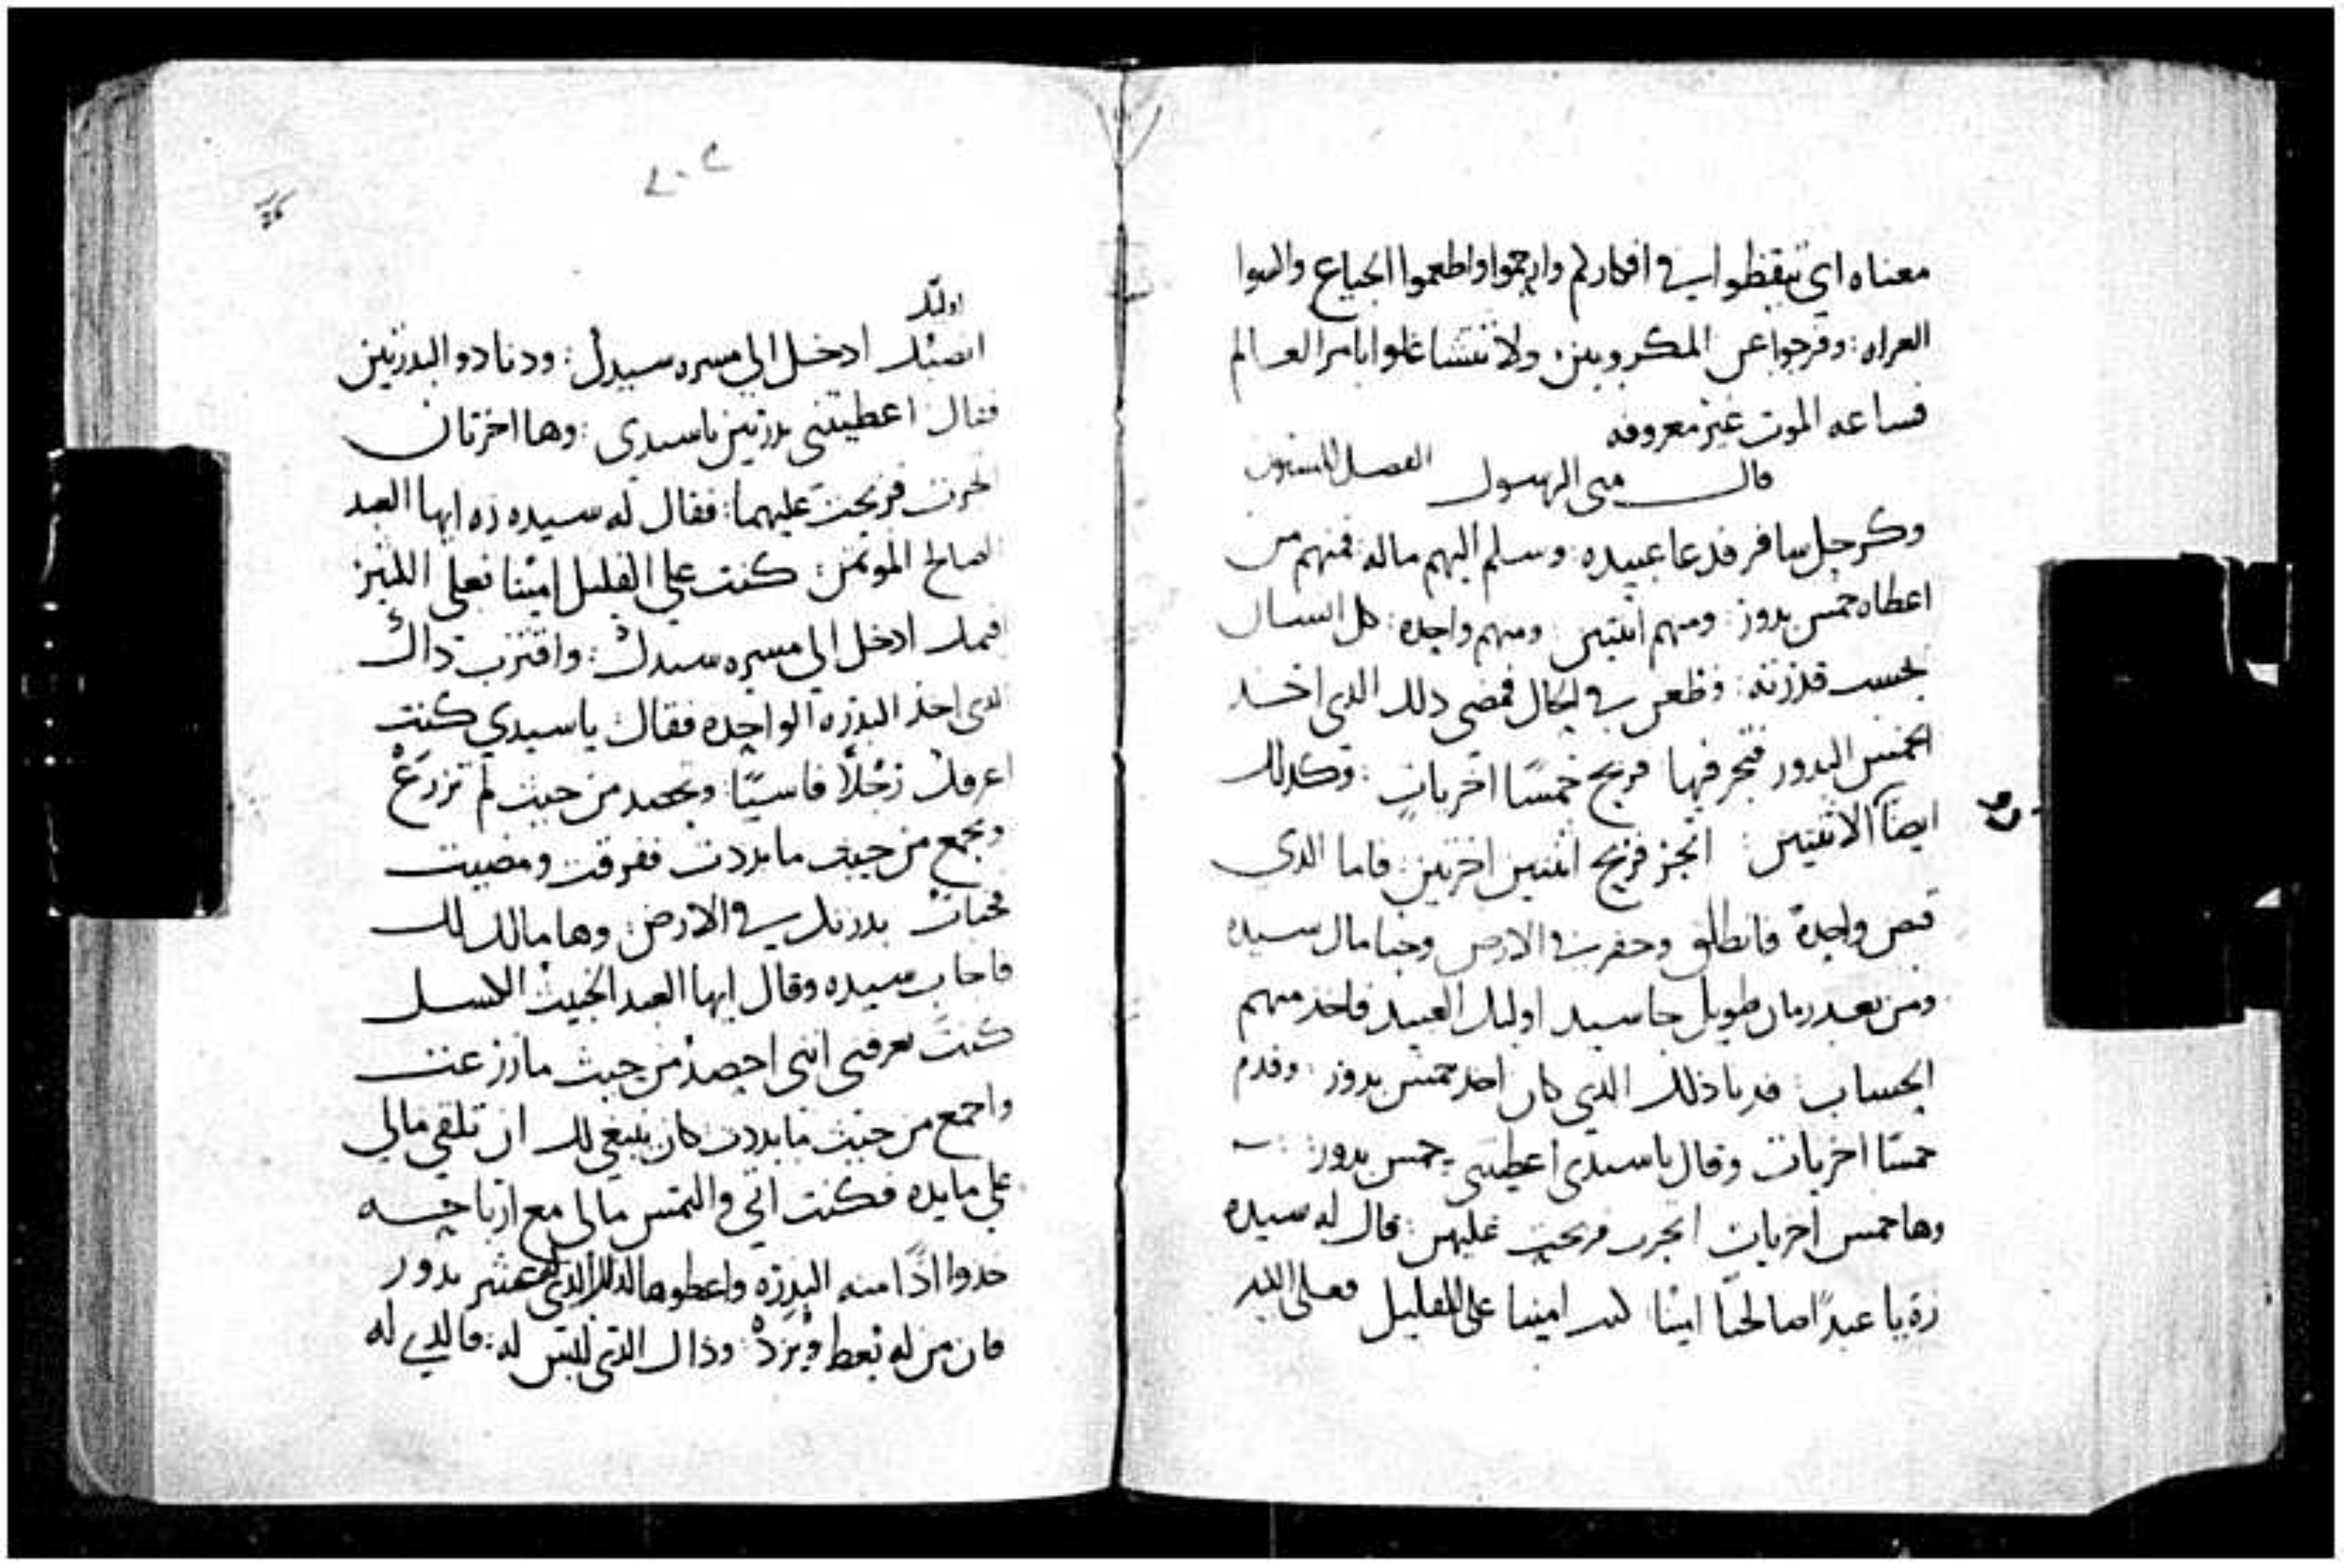 معناه اي تيقظوا في افكاركم وارحموا واطعموا الجياع واكسوا
العراه : وفرجوا عن المكروبين ولا تتشاغلوا بامر العالم
فساعه الموت غير معروفه
قال متى الرسول الفصل الستون
وكرجل سافر فدعا عبيده : وسلم اليهم ماله : فمنهم من
اعطاه خمس بدور : ومنهم اثنتين : ومنهم واحده : كل انسان
بحسب قدرته : وظعن في الحال فمضى دلك الدى اخد
الخمس البدور فتجر فيها فربح خمسًا اخريات : وكدلك
ايضاً الاثنتين اتجر فربح اثنتين اخرتين : فاما الدي
قبض واحدة فانطلق وحفر في الارض وخبا مال سيده
ومن بعد زمان طويل جا سيد اوليك العبيد فاخد منهم
الحساب : فدنا ذلك الدي كان اخد خمس بدور : وقدم
خمسًا اخريات وقال يا سيدي اعطيتني خمس بدور :
وها خمس اخريات اتجرت فربحت عليهن : قال له سيده
زه يا عبدًا صالحًا امينًا كنت امينا على القليل فعلى الكثير
٢٠٢
اوليك
انصبك ادخل الي مسره سيدك : ودنا دو البدرتين
فقال اعطيتني بدرتين يا سيدي : وها اخرتان
اتجرت فربحت عليهما : فقال له سيده زه ايها العبد
الصالح الموتمن : كنت علي القليل امينًا فعلى الكثير
اقيمك ادخل الي مسره سيدك : واقترب داك
الدى اخذ البدره الواحده فقال يا سيدي كنت
اعرفك رجُلاً قاسيًا : وتحصد من حيث لم تزرعْ
وتجمع من حيث ما بددت ففرقت ومضيت
فخبات بدرتك في الارض : وها مالك لك
فاجاب سيده وقال ايها العبد الخبيث الكسل
كنت تعرفني انني احصد من حيث ما زرعت
واجمع من حيث ما بددت كان ينبغي لك ان تلقي مالي
علي مايده فكنت اتي والتمس مالي مع ارباحه
خدوا اذًا منه البدره واعطوها لدلك الدي له عشر بدور
فان من له يُعط ويُزدْ : وذاك الذي ليس له : فالدي له